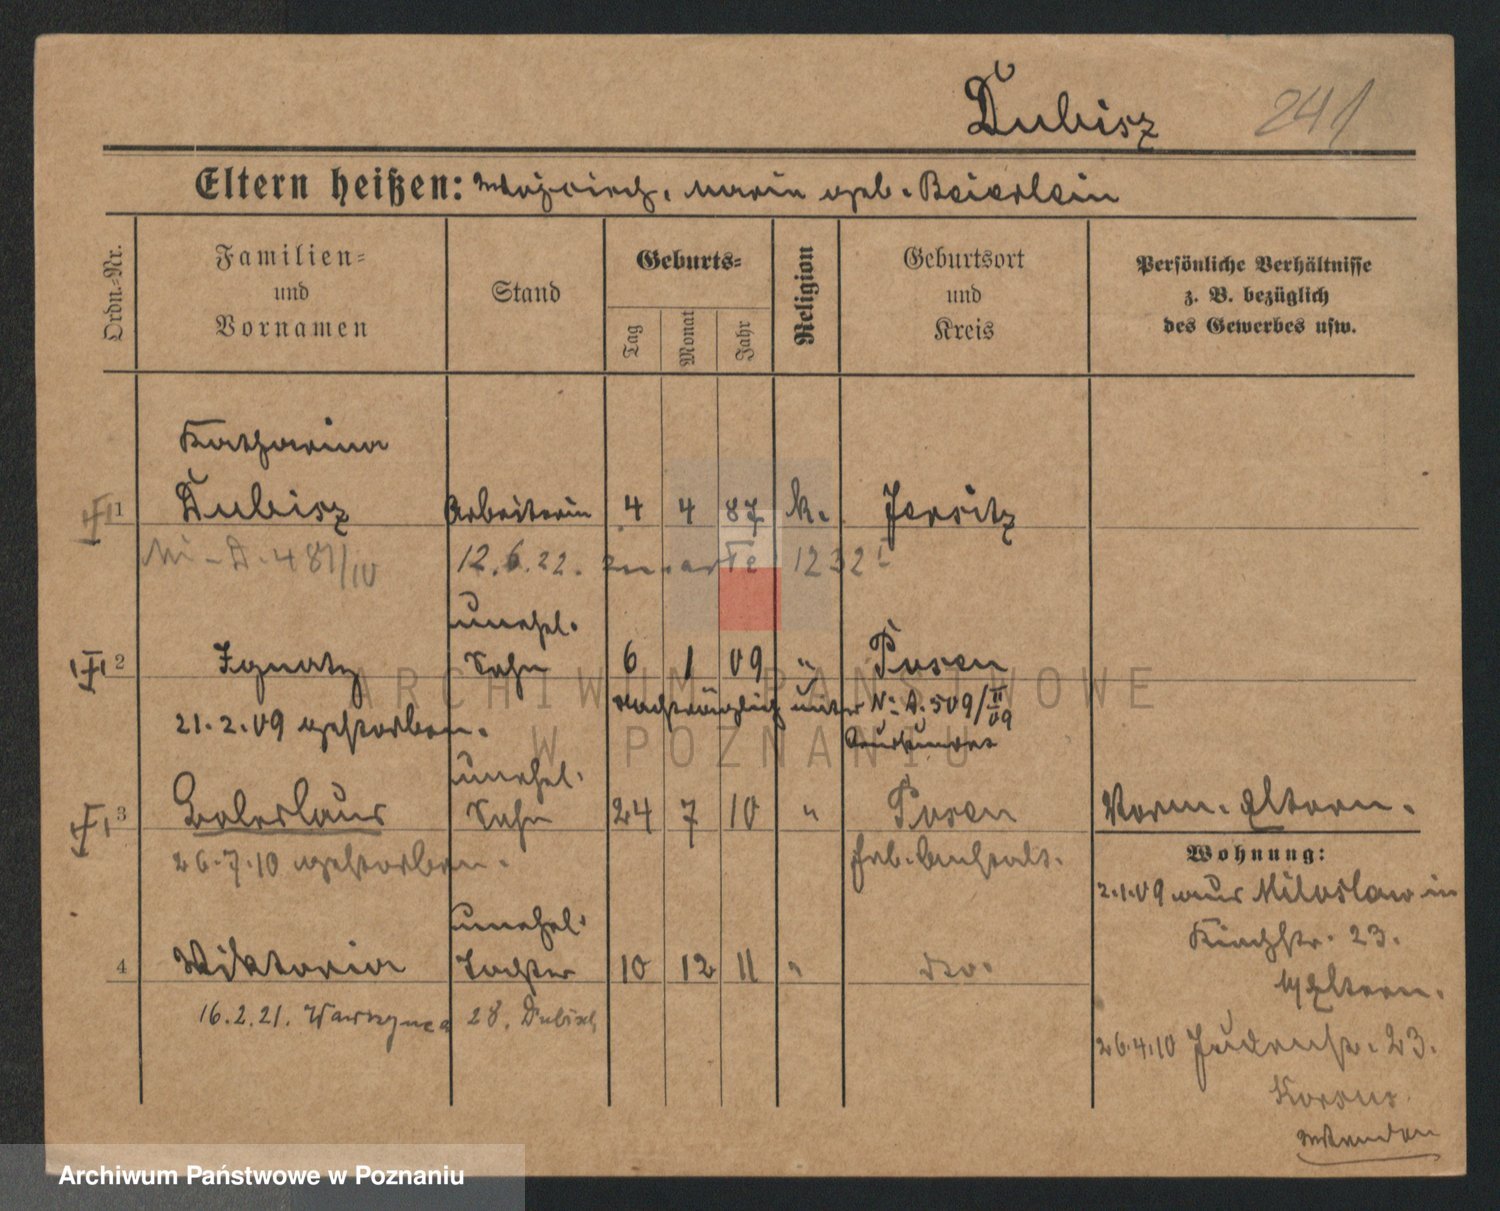 Dubisz 241
Eltern heißen: Wojciech, Maria geb. Beierlein
Ordn.-Nr.
Familien-
und
Vornamen
Stand
Geburts-
Tag
Monat
Jahr
Religion
Geburtsort
und
Kreis
Persönliche Verhältnisse
z. B. bezüglich
des Gewerbes usw.
Katharina
1 Dubisz Arbeiterin 4 4 87 k. Jersitz
12.6.22. 1232
unehel.
2 Ignatz Sohn 6 1 09 " Posen
21.2.09 gestorben. Nachträglich unter Nr. A. 509/II 09
beurkundet
unehel.
3 Boleslaus Sohn 24 7 10 " Posen
26.7.10 gestorben. Heb. Anstalt.
unehel.
4 Wiktoria Tochter 10 12 11 " dto.
16.2.21. Wawrzyn 28. Dubisch
Vorm. Eltern.
Wohnung:
2.1.09 aus Miloslaw in
Kirchstr. 23.
b/Eltern.
26.4.10 Judenstr. 23.
wenden
ARCHIWUM PAŃSTWOWE
W POZNANIU
Archiwum Państwowe w Poznaniu